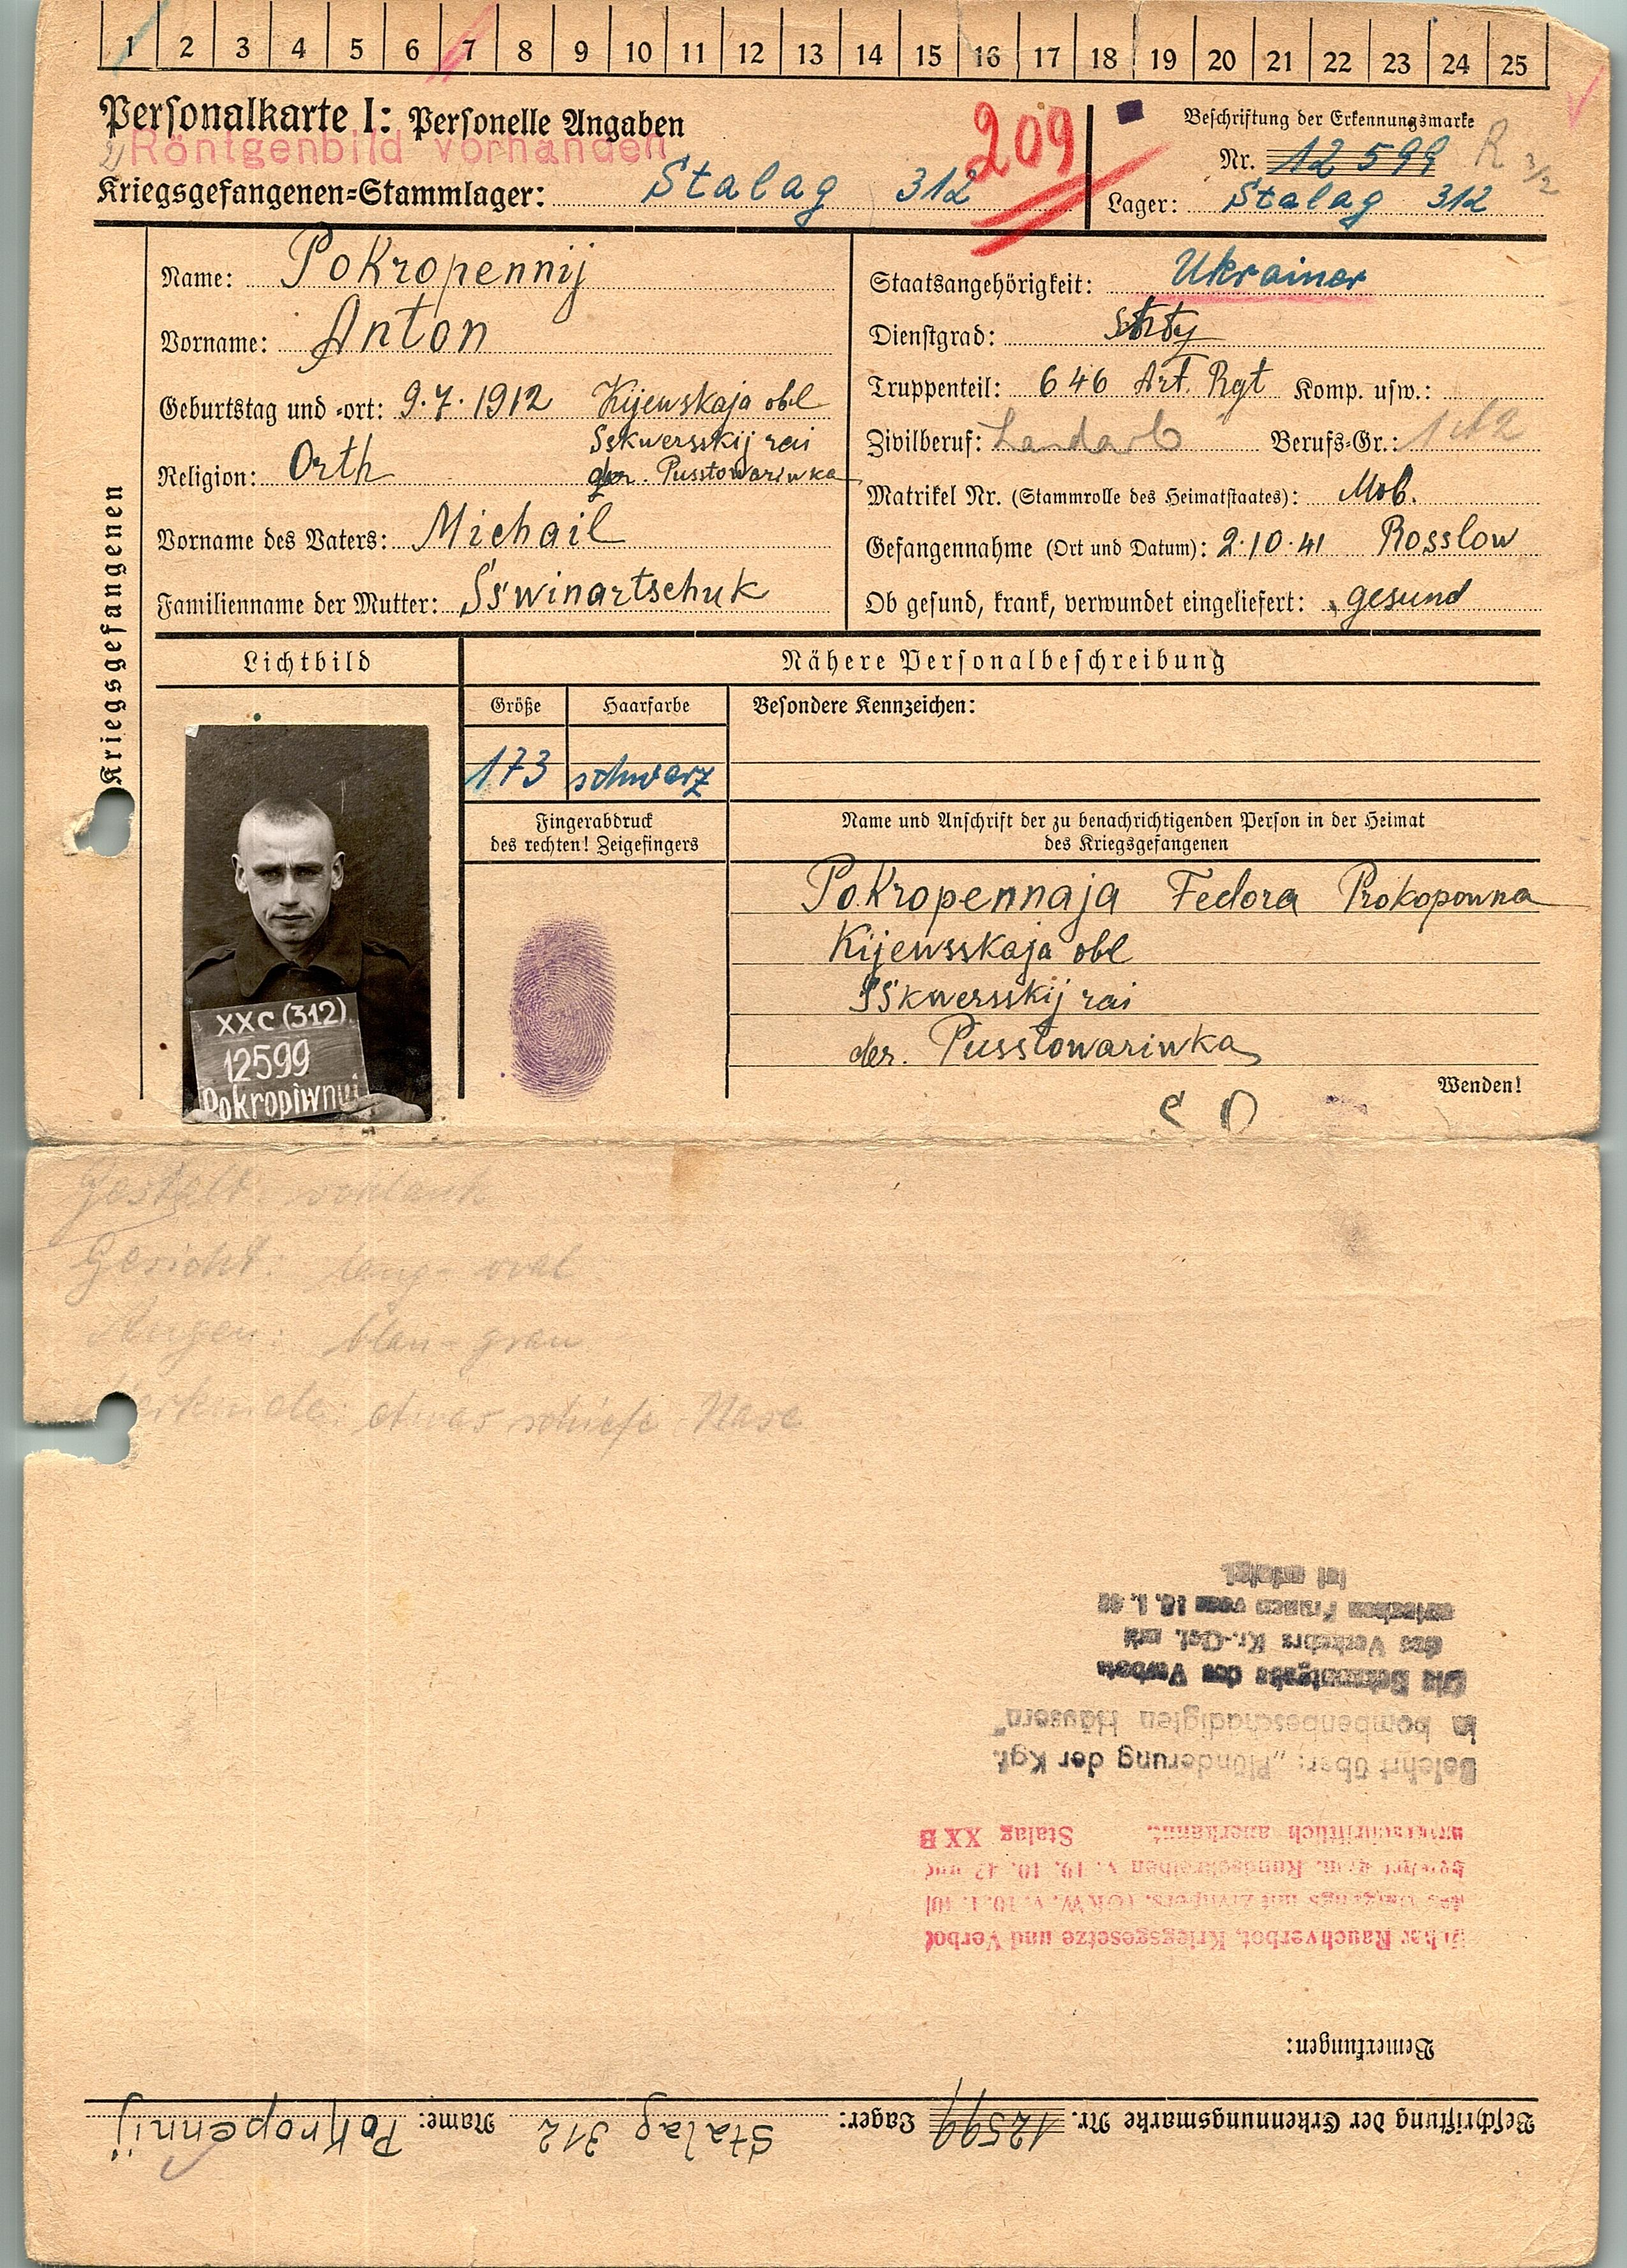 1 2 3 4 5 6 7 8 9 10 11 12 13 14 15 16 17 18 19 20 21 22 23 24 25
Personalkarte I: Personelle Angaben
Röntgenbild vorhanden
Kriegsgefangenen=Stammlager: Stalag 312
209
Beschriftung der Erkennungsmarke
Nr. 12 599
R 3/2
Lager: Stalag 312
Kriegsgefangenen
Name: PoKropennij
Vorname: Anton
Geburtstag und =ort: 9.7.1912 Kijewskaja obl
Sskwersskij rai
Religion: Orth der. Pusstowariwka
Vorname des Vaters: Michail
Familienname der Mutter: Sswinartschuk
Staatsangehörigkeit: Ukrainer
Dienstgrad:
Truppenteil: 646 Art. Rgt Komp. usw.:
Zivilberuf: Landarb Berufs=Gr.:
Matrikel Nr. (Stammrolle des Heimatstaates): Mob.
Gefangennahme (Ort und Datum): 2.10.41 Rosslow
Ob gesund, krank, verwundet eingeliefert: gesund
Lichtbild
Nähere Personalbeschreibung
Größe Haarfarbe Besondere Kennzeichen:
173 schwarz
Fingerabdruck
des rechten! Zeigefingers
Name und Anschrift der zu benachrichtigenden Person in der Heimat
des Kriegsgefangenen
PoKropennaja Fedora Prokopowna
Kijewsskaja obl
Sskwersskij rai
der. Pusstowariwka
XXC (312)
12599
Pokropiwnyj
Wenden!
Gestalt:
Gesicht: lang-oval
Augen: blau-grau
Merkmale: etwas schiefe Nase
Beschriftung der Erkennungsmarke Nr. 12599 Lager: Stalag 312 Name: PoKropennij
Bemerkungen:
Über Rauchverbot, Kriegsgesetze und Verbot
des Umgangs mit Zivilpers. (OKW. v. 10. 1. 40)
belehrt gem. Rundschreiben v. 19. 10. 42 und
unterschriftlich anerkannt. Stalag XX B
Belehrt über: „Plünderung der Kgf.
in bombenbeschädigten Häusern"
Die Bekanntgabe des Verbots
des Verkehrs Kr.-Gef. mit
deutschen Frauen vom 16. 1. 43
ist erfolgt.